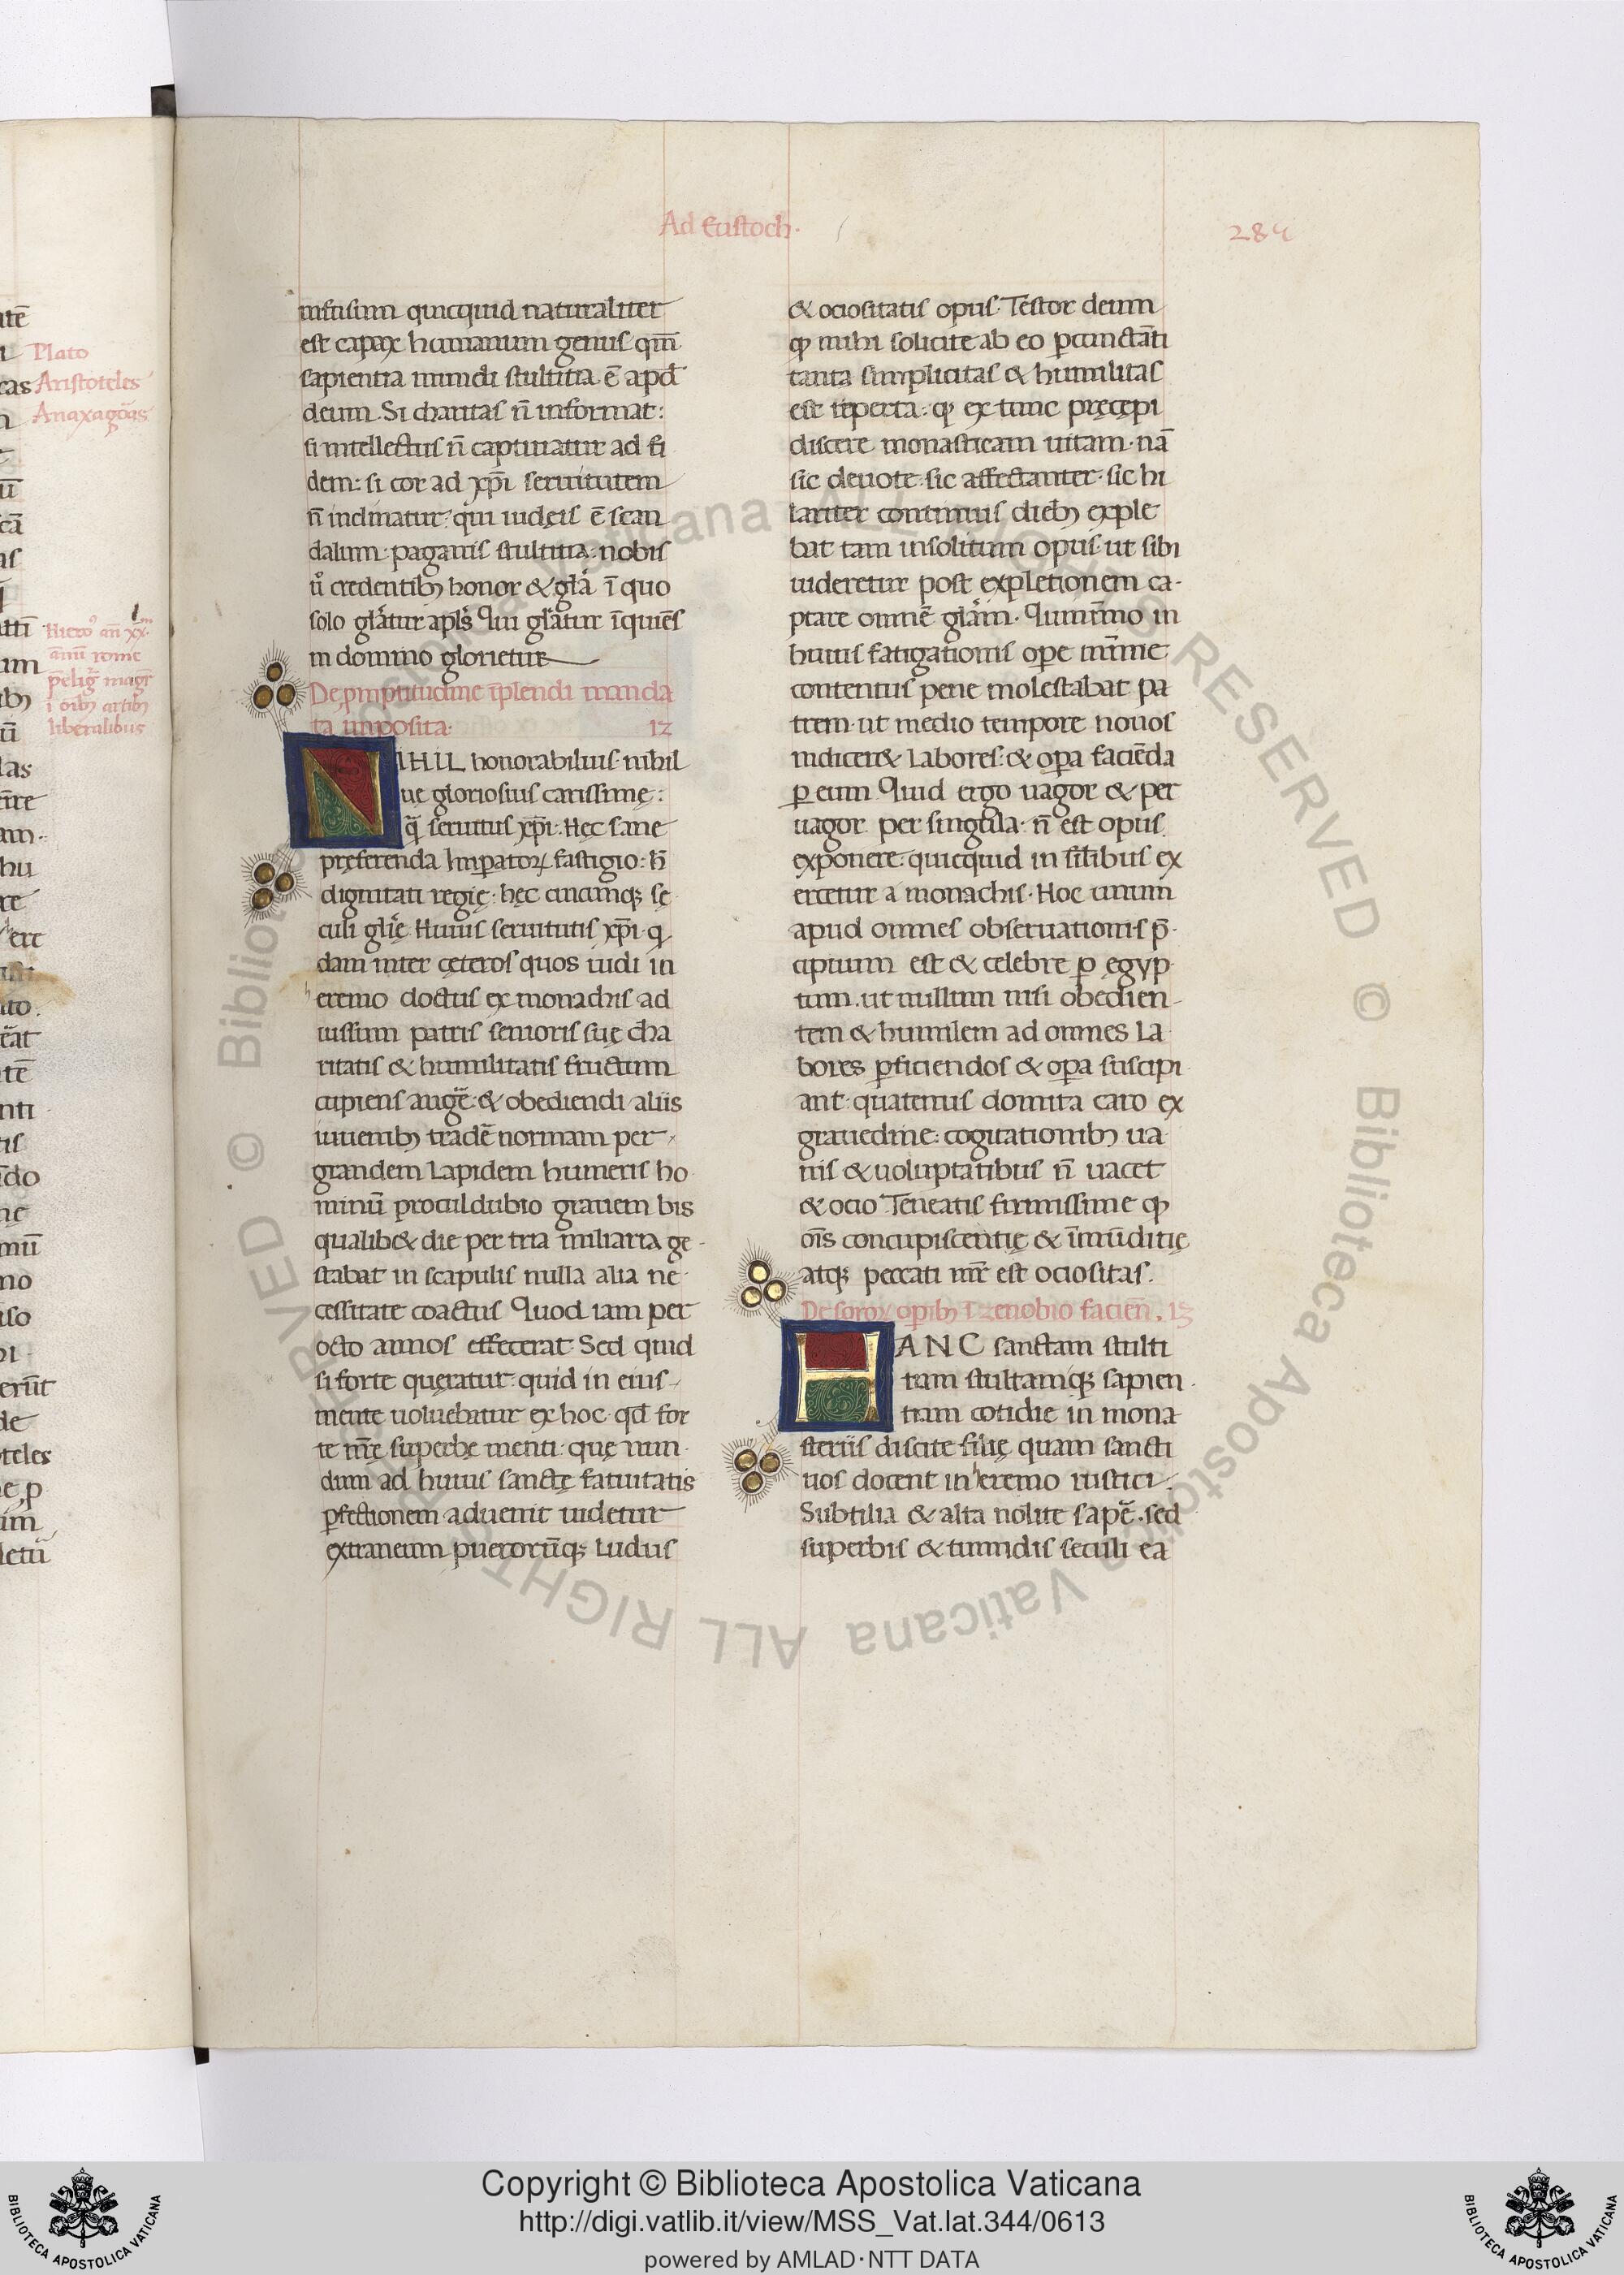 Ad Eustoch·
mstisum quicquid naturaliter
est capax humanum genus qm̄
sapientia mundi stultitia ē apd̄
deum. Si charitas n̄ informat:
si intellectus n̄ captiuatur ad fi
dem: si cor ad xp̄i seruitutem
n̄ inclinatur: qui iudęis ē scan
dalum: paganis stultitia: nobis
ů credentib; honor & gl̄a ī quo
solo gl̄atur apl̄s Qui gl̄atur īquiēs
in domino glorietur
De p̄mptitudine īplendi manda
ta imposita· 12
NIHIL honorabilius· nihil
ue gloriosius carissimę:
q̄ seruitus xp̄i. Hęc sane
pręferenda Imperatoꝝ fastigio: h̄
dignitati regię: hęc cuicumq; sę
culi gl̄ię Huius seruitutis xp̄i q
dam inter cęteros quos uidi in
heremo doctus ex monachis ad
iussum patris senioris suę cha
ritatis & humilitatis fructum
cupiens augē: & obediendi aliis
iuuenib; tradē normam per
grandem lapidem humeris ho
minū proculdubio grauem bis
qualib& die per tria miliaria ge
stabat in scapulis nulla alia ne
cessitate coactus Quod iam per
octo annos effecerat· Sed quid
si forte quęratur: quid in eius
mente uoluebatur ex hoc qd̄ for
te m̄ę superbę menti: quę nun
dum ad huius sanctę fatuitatis
ꝑfectionem aduenit uidetur
extraneum puerorūq; ludus
& ociositatis opus· Testor deum
ꝙ mihi solicite ab eo ꝑcunctāti
tanta simplicitas & humilitas
est reperta: ꝙ ex tunc pręcępi
discere monasticam uitam· nā
sic deuote sic affectanter· sic hi
lariter continuis dieb; exple
bat tam insolitum opus· ut sibi
uideretur post expletionem ca-
ptare omnē gl̄am· Quinīmo in
huius fatigationis oꝑe mīme
contentus pene molestabat pa
trem· ut medio tempore nouos
indicer& labores: & oꝑa faciēda
ꝑ eum Quid ergo uagor & per
uagor per singula· n̄ est opus
exponere: quicquid in sīlibus ex
ercetur a monachis· Hoc unum
apud omnes obseruationis p̄-
cipuum est & celebre ꝑ ęgyp
tum. ut nullum nisi obedien-
tem & humilem ad omnes la
bores ꝑficiendos & oꝑa suscipi
ant: quatenus domita caro ex
grauedine: cogitationib; ua
nis & uoluptatibus n̄ uacet
& ocio· Teneatis firmissime ꝙ
oīs concupiscentię & īmūditię
atq; peccati mr̄ est ociositas.
De soroꝝ oꝑib; ī zenobio facien̄. 13
HANC sanctam stulti
tiam stultamq; sapien-
tiam cotidie in mona
steriis discite filię quam sancti
uos docent in heremo rustici·
Subtilia & alta nolite sapē· sed
superbis & tumidis seculi ea
Plato
Aristoteles
Anaxagōas
liberalibus
Copyright © Biblioteca Apostolica Vaticana
http://digi.vatlib.it/view/MSS_Vat.lat.344/0613
powered by AMLAD·NTT DATA
BIBLIOTECA APOSTOLICA VATICANA
BIBLIOTECA APOSTOLICA VATICANA
© Biblioteca Apostolica Vaticana ALL RIGHTS RESERVED
© Biblioteca Apostolica Vaticana ALL RIGHTS RESERVED